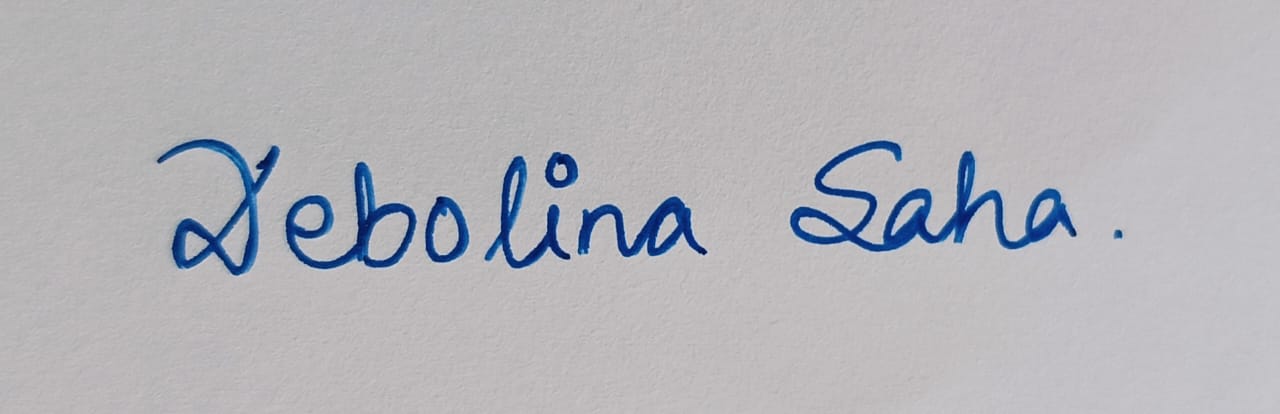 Debolina Saha.